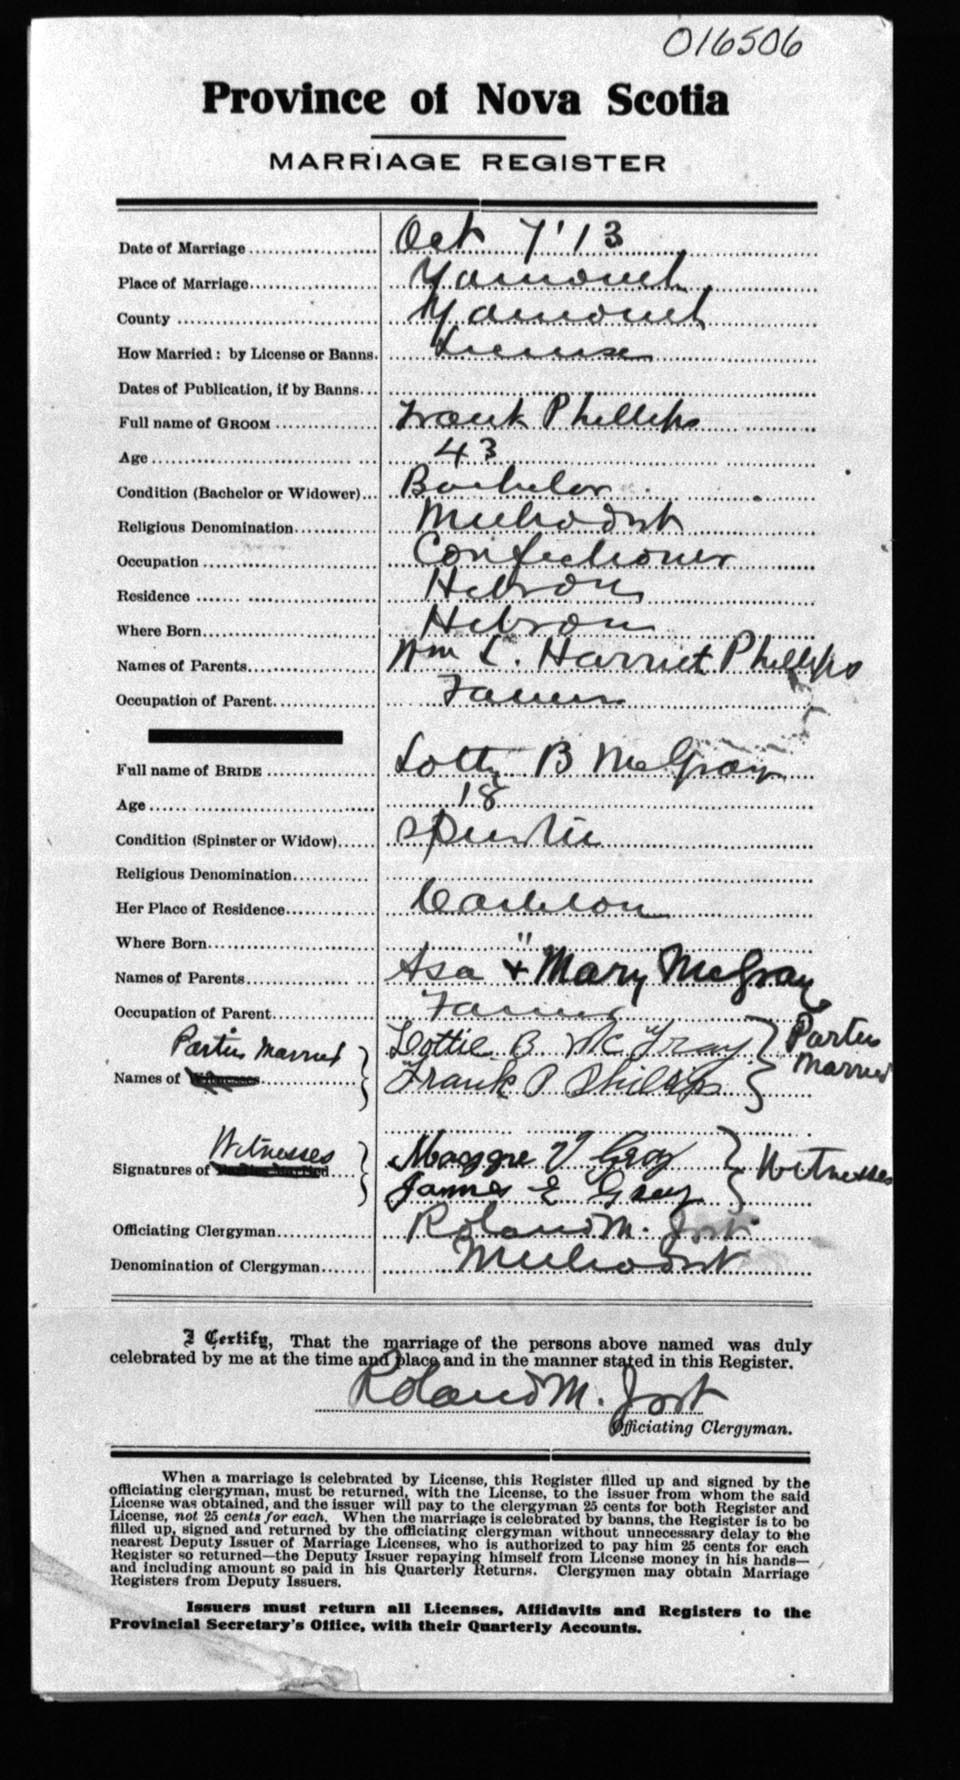 016506
Province of Nova Scotia
MARRIAGE REGISTER
Date of Marriage Oct 7' 13
Place of Marriage Yarmouth
County Yarmouth
How Married: by License or Banns. License
Dates of Publication, if by Banns
Full name of GROOM Frank Phillips
Age 43
Condition (Bachelor or Widower) Bachelor
Religious Denomination Methodist
Occupation Confectioner
Residence Hebron
Where Born Hebron
Names of Parents Wm & Harriet Phillips
Occupation of Parent Farmer
Full name of BRIDE Lotty B McGray
Age 18
Condition (Spinster or Widow) Spinster
Religious Denomination
Her Place of Residence Carleton
Where Born "
Names of Parents Asa + Mary McGray
Occupation of Parent Farmer
Parties Married Lottie B McGray } Parties
Names of Witnesses Frank P Phillips } Married
Witnesses Maggie V Gray } Witnesses
Signatures of Parties Married James E Gray
Officiating Clergyman Roland M. Jost
Denomination of Clergyman Methodist
I Certify, That the marriage of the persons above named was duly
celebrated by me at the time and place and in the manner stated in this Register.
Roland M. Jost
Officiating Clergyman.
When a marriage is celebrated by License, this Register filled up and signed by the
officiating clergyman, must be returned, with the License, to the issuer from whom the said
License was obtained, and the issuer will pay to the clergyman 25 cents for both Register and
License, not 25 cents for each. When the marriage is celebrated by banns, the Register is to be
filled up, signed and returned by the officiating clergyman without unnecessary delay to the
nearest Deputy Issuer of Marriage Licenses, who is authorized to pay him 25 cents for each
Register so returned—the Deputy Issuer repaying himself from License money in his hands—
and including amount so paid in his Quarterly Returns. Clergymen may obtain Marriage
Registers from Deputy Issuers.
Issuers must return all Licenses, Affidavits and Registers to the
Provincial Secretary's Office, with their Quarterly Accounts.